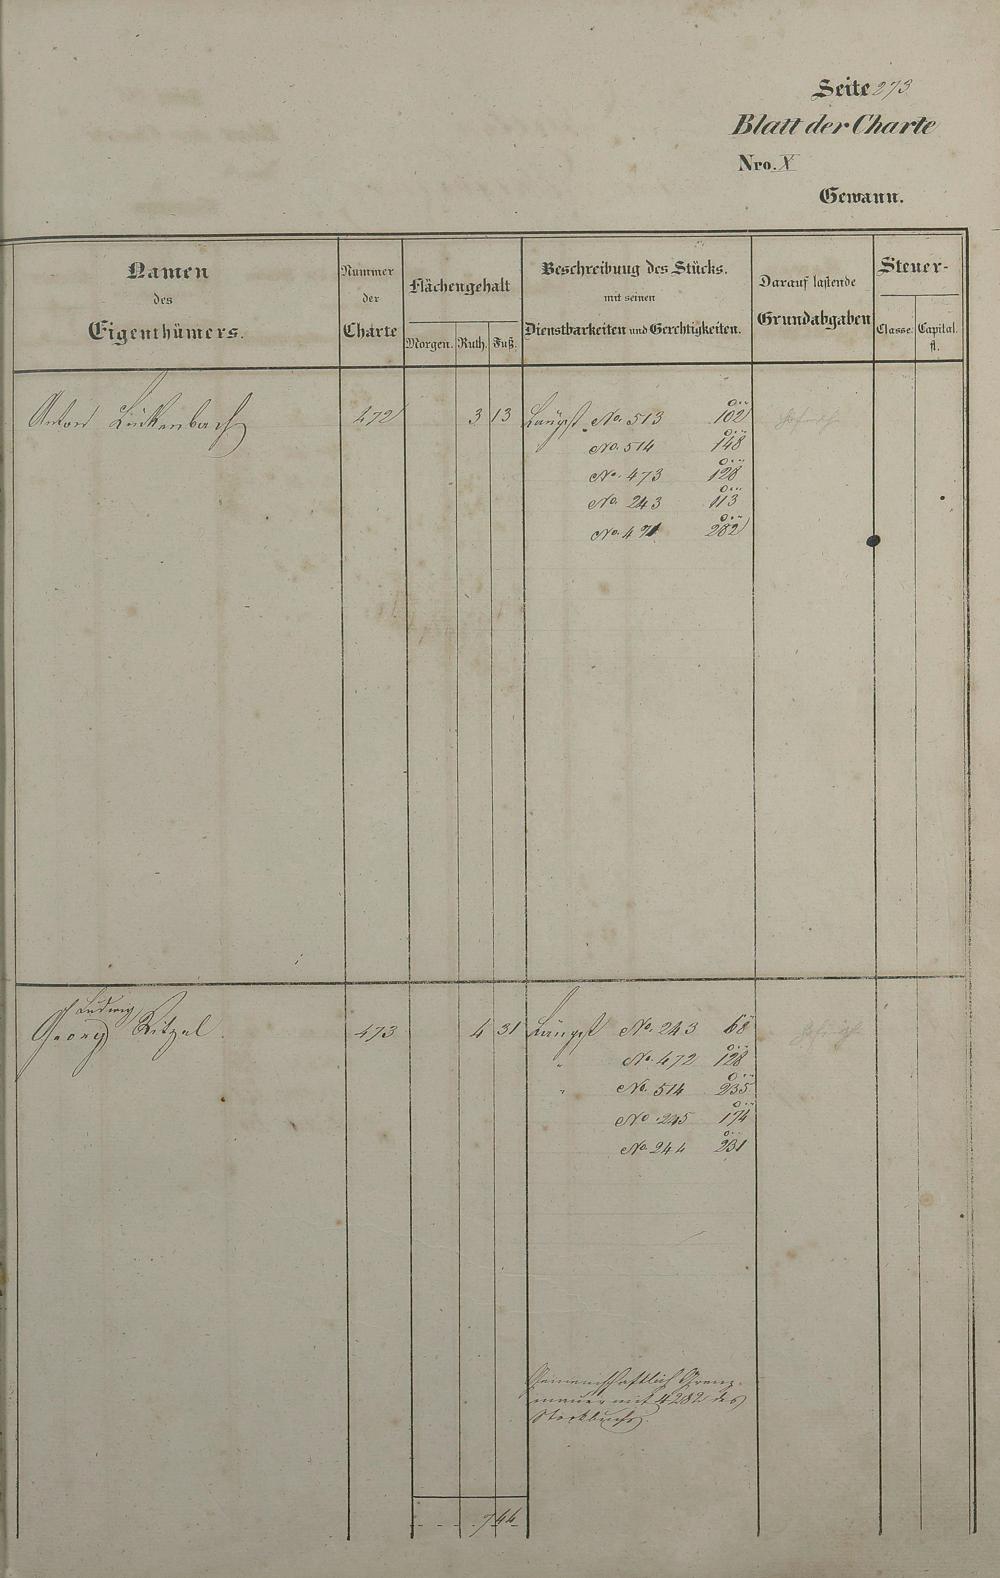 Seite 273
Blatt der Charte
Nro. X
Gewann.
Namen
des
Eigenthümers.
Nummer
der
Charte
Flächengehalt
Morgen. Ruth. Fuß.
Beschreibung des Stücks.
mit seinen
Dienstbarkeiten und Gerchtigkeiten.
Darauf lastende
Grundabgaben
Steuer-
Classe. Capital.
fl.
Anton Lückenbach 472 3 13 Längst No. 513 102
No. 514 148
No. 473 128
No. 243 113
No. 471 282
Ludwig
Georg Ritzel 473 4 31 Längst No. 243 68
" No. 472 128
" No. 514 235
No 245 174
No. 244 231
Gemeinschaftlich Grenz-
mauer mit 4282 des
Stockbuchs.
7 44